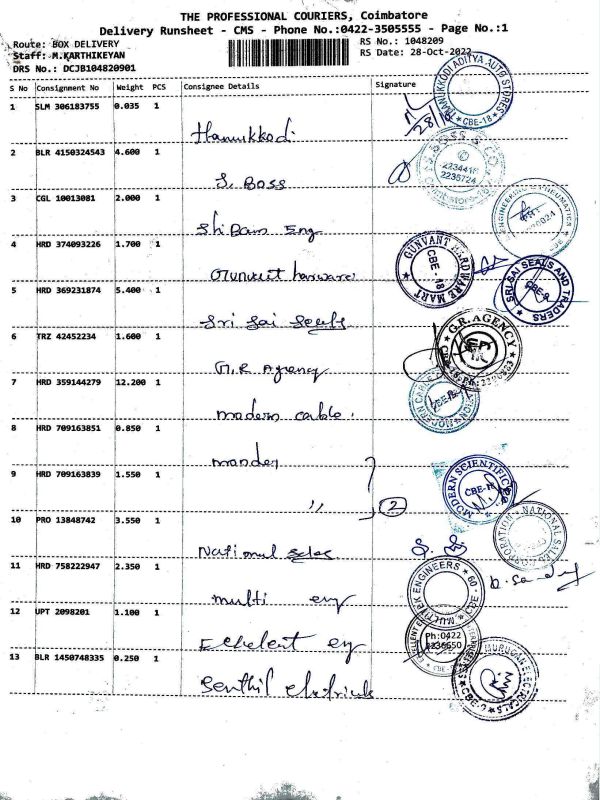 THE PROFESSIONAL COURIERS, Coimbatore
Delivery Runsheet - CMS - Phone No.:0422-3505555 - Page No.:1
Route: BOX DELIVERY
Staff: M.KARTHIKEYAN
DRS No.: DCJB104820901
RS No.: 1048209
RS Date: 28-Oct-2022
S No Consignment No Weight PCS Consignee Details Signature
1 SLM 306183755 0.035 1
Hanukkodi
28/10
THANUKKODI ADITYA AUTO STORES
* CBE-18 *
2 BLR 4150324543 4.600 1
S. Boss
3 CGL 10013081 2.000 1
Shibam Eng
4 HRD 374093226 1.700 1
hardware
GUNVANT HARDWARE MART
CBE - 18
5 HRD 369231874 5.400 1
Sri Sai Seals
SRI SAI SEALS AND TRADERS
CBE-9
6 TRZ 42452234 1.600 1
G.R Agency
G.R. AGENCY
7 HRD 359144279 12.200 1
modern cable.
8 HRD 709163851 0.850 1
9 HRD 709163839 1.550 1
〃 2
MODERN SCIENTIFIC
CBE-18
10 PRO 13848742 3.550 1
National sales
NATIONAL SALES CORPORATION
11 HRD 758222947 2.350 1
multi eng
MULTITEK ENGINEERS
12 UPT 2098201 1.100 1
Ph:0422
2236650
13 BLR 1450748335 0.250 1
Senthil
MURUGAN ELECTRICALS
CBE-9